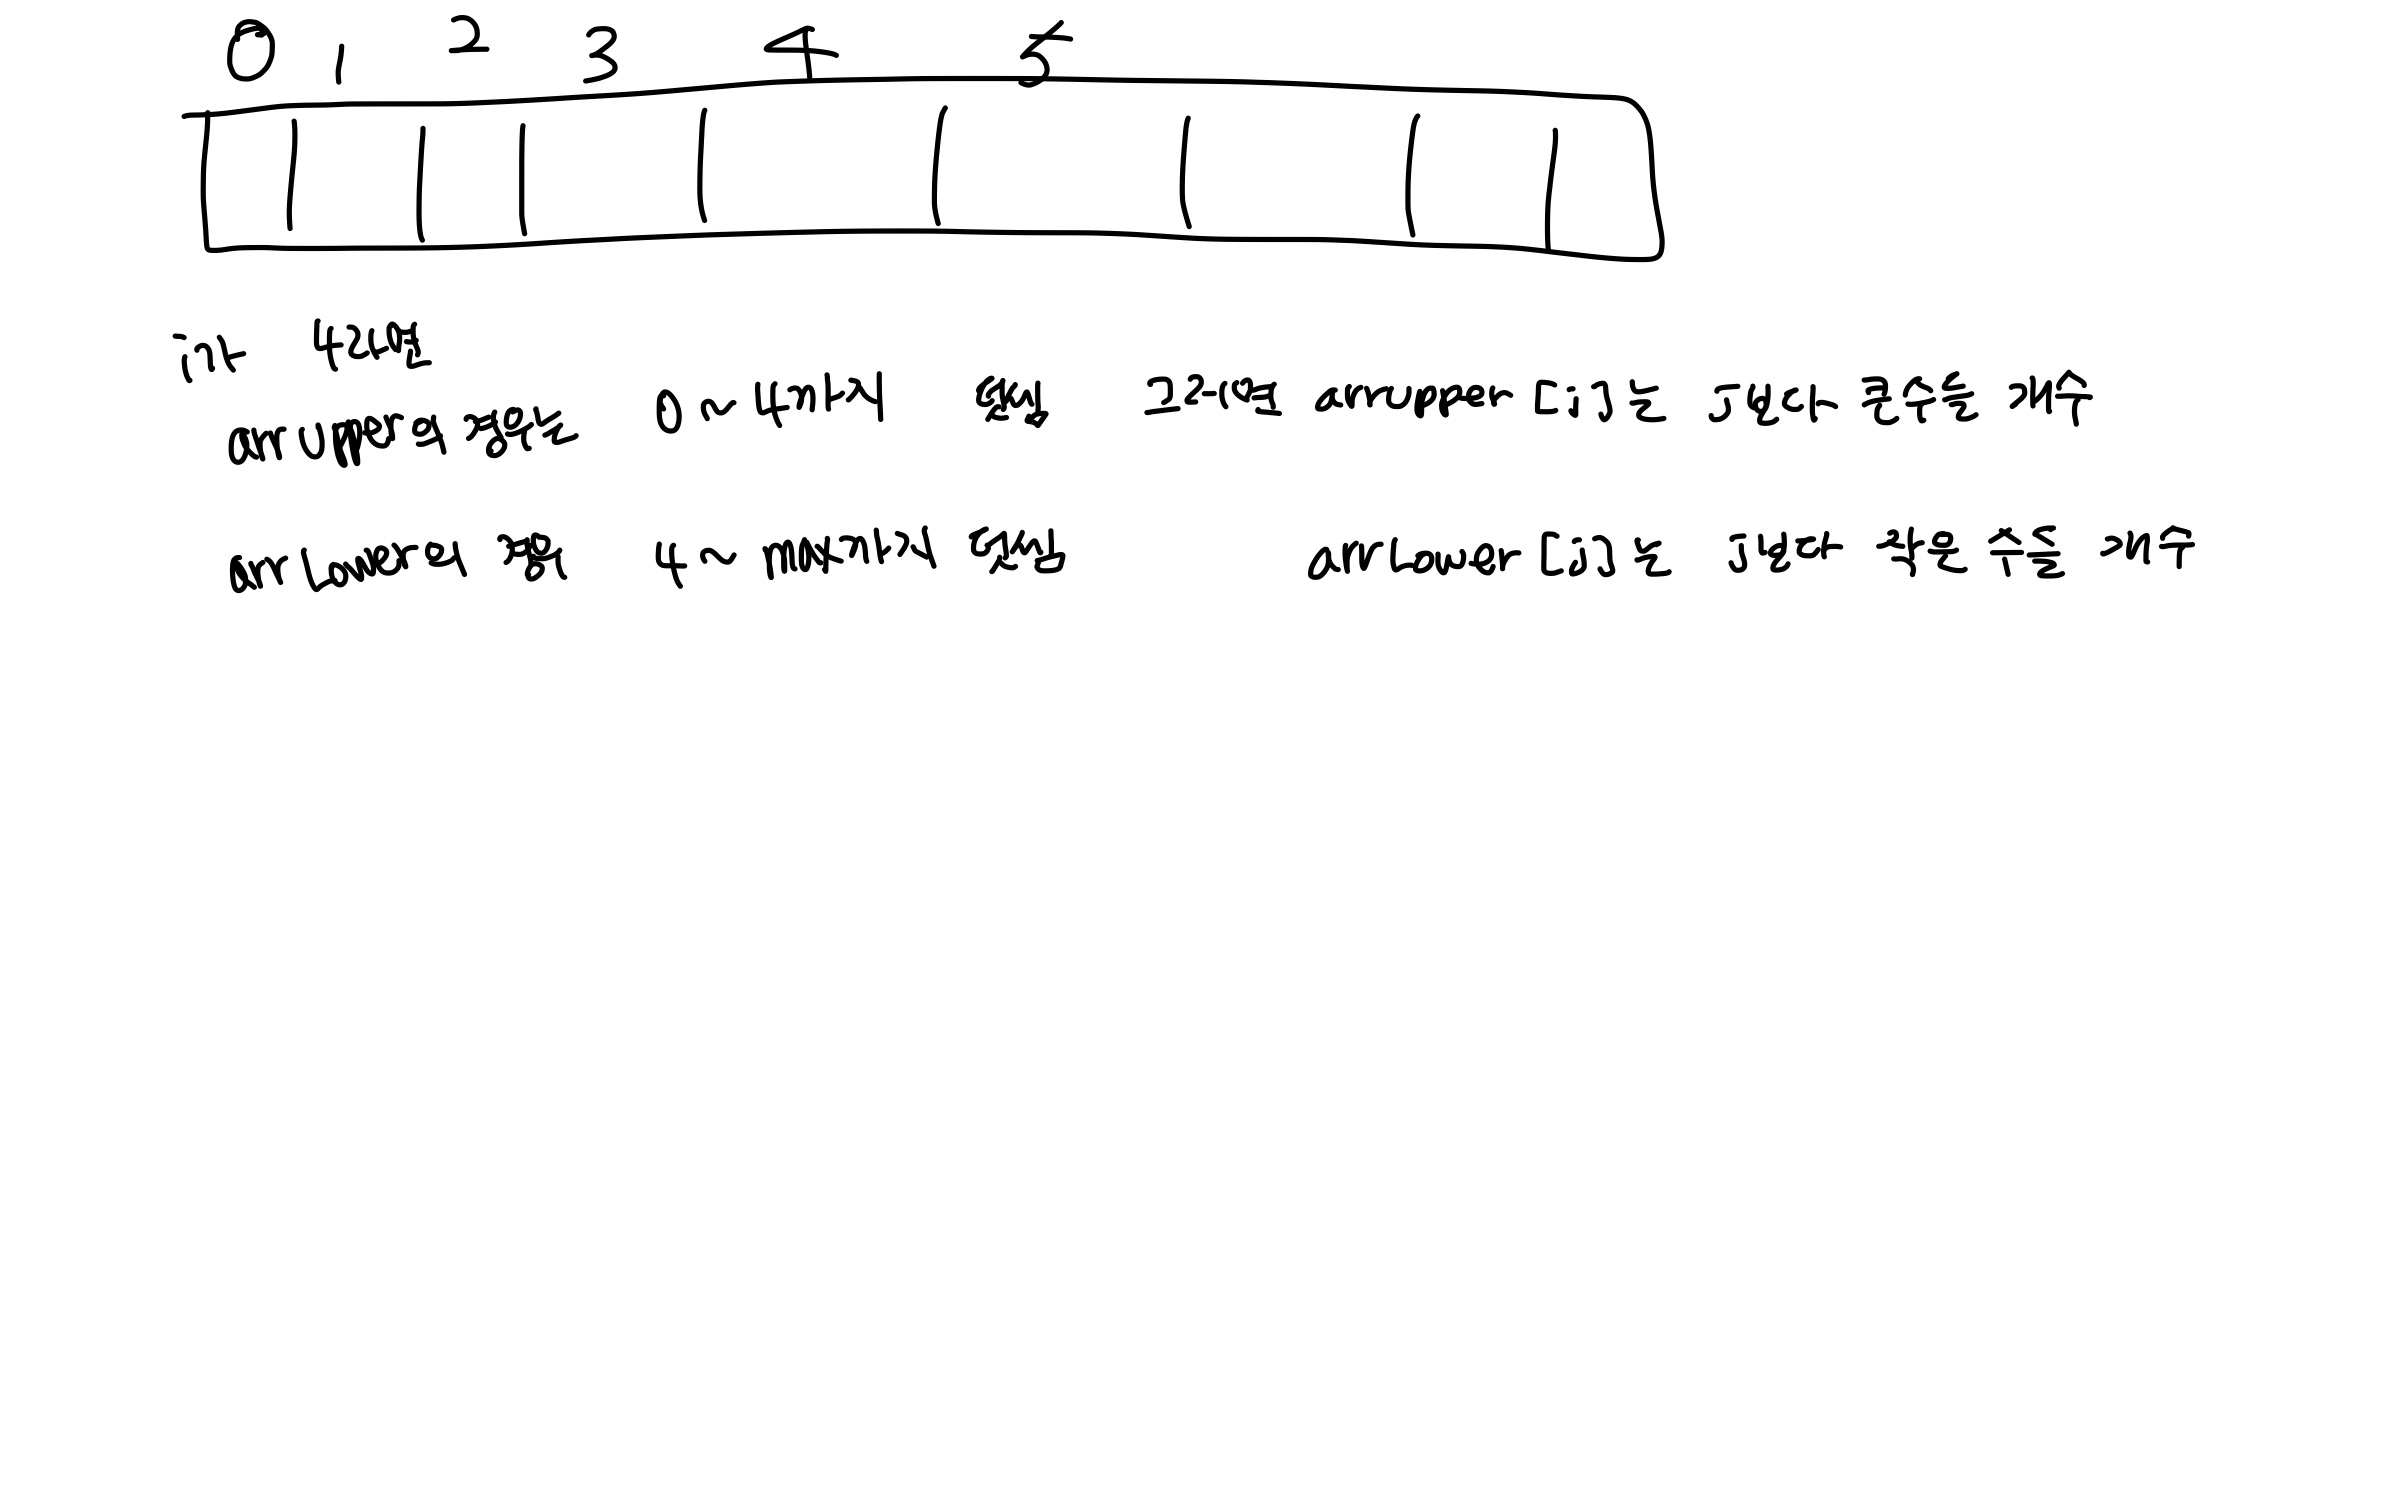 0 1 2 3 4 5
int 4라면
arr upper의 경우는 0~4까지 연산 그러면 arrupper[i]는 i보다 큰수들 개수
arr Lower의 경우 4~max까지 연산 arrLower[i]는 i보다 작은 수들 개수